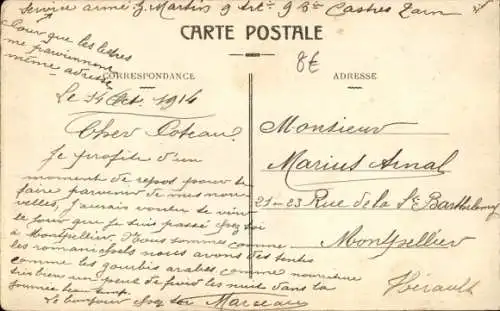 Service armé G. Martin 9 Art. 9 Bie Castres Tarn
Pour que les lettres
me parviennent
même adresse
CARTE POSTALE
8€
CORRESPONDANCE
ADRESSE
Le 14 Oct. 1914
Cher Coteau.
Je profite d'un
moment de repos pour te
faire parvenir de mes nou-
velles, j'aurais voulu te voir
le jour que je suis passé
à Montpellier. Nous sommes comme
les romanichels nous avons des tentes
comme les gourbis arabes comme nourriture
très bien un peu de froid les nuits dans la
journée beau temps.
Le bonjour Marceau
Monsieur
Marius Arnal
21-23 Rue de la St Barthelemy
Montpellier
Hérault